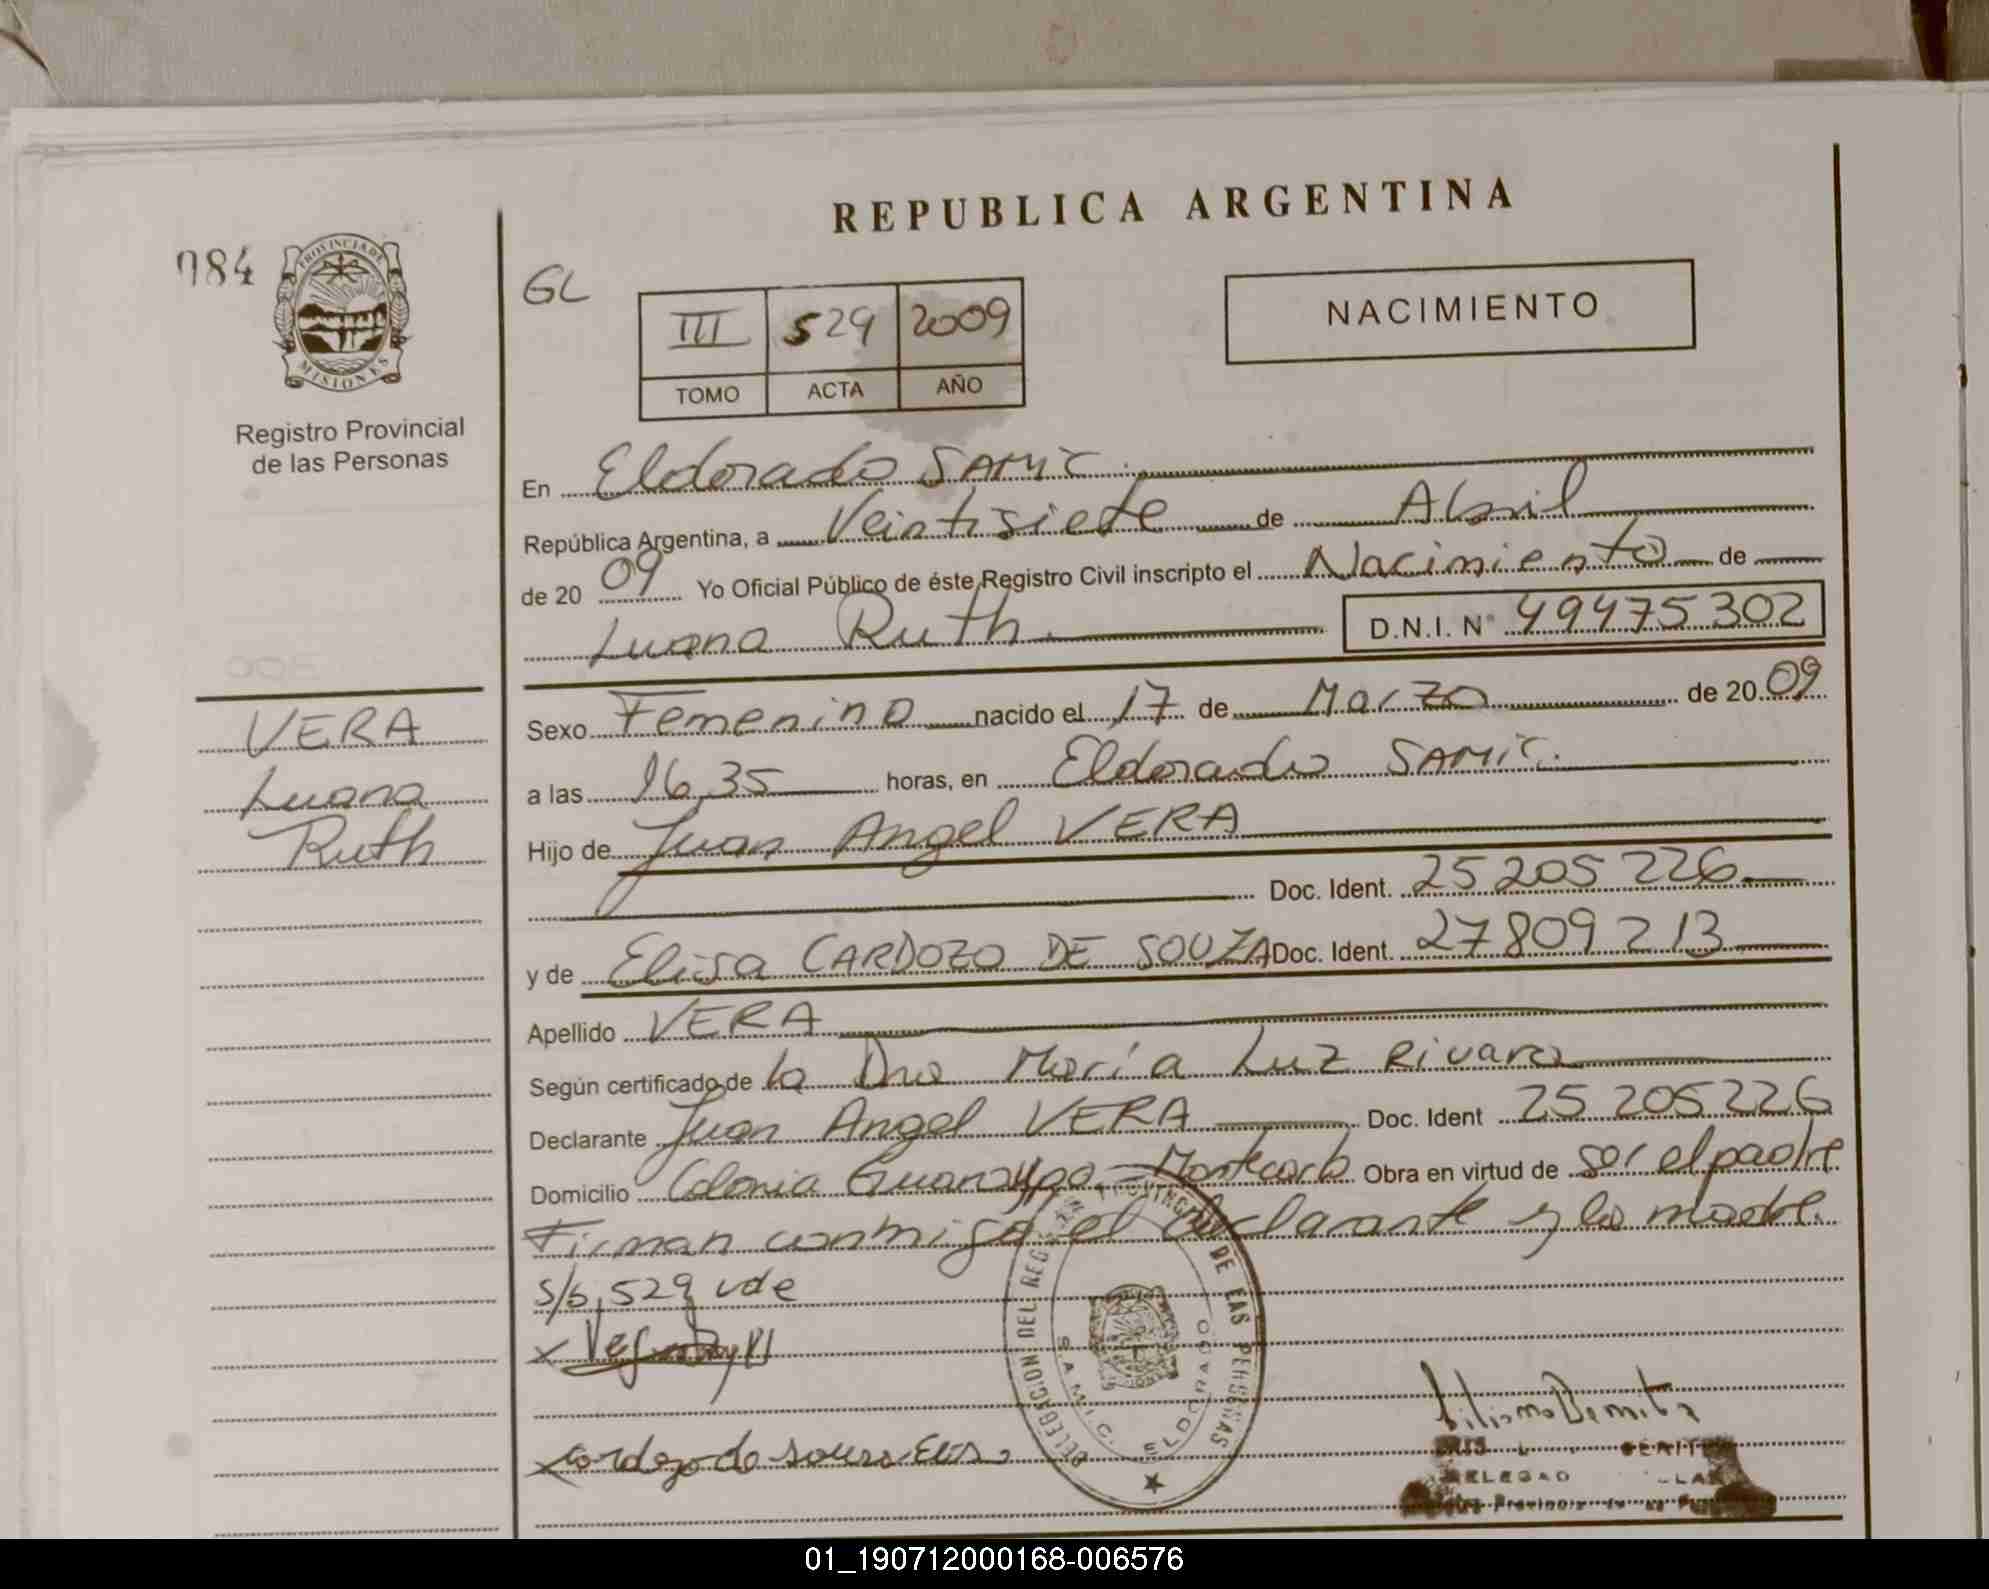 REPUBLICA ARGENTINA
084
PROVINCIA DE
MISIONES
Registro Provincial
de las Personas
GL
III 529 2009
TOMO ACTA AÑO
NACIMIENTO
En Eldorado SAMIC
República Argentina, a Veintisiete de Abril
de 20 09 Yo Oficial Público de éste Registro Civil inscripto el Nacimiento de
Luana Ruth D.N.I. Nº 49475302
VERA
Luana
Ruth
Sexo Femenino nacido el 17 de Marzo de 20 09
a las 16,35 horas, en Eldorado SAMIC.
Hijo de Juan Angel VERA
Doc. Ident. 25205226
y de Elisa CARDOZO DE SOUZA Doc. Ident. 27809213
Apellido VERA
Según certificado de la Dra María Luz Rivara
Declarante Juan Angel VERA Doc. Ident 25 205226
Domicilio Colonia Guaraypo - Montecarlo Obra en virtud de ser el padre
Firman conmigo el declarante y la madre.
s/b, 529 vde
DELEGACION DEL REGISTRO PROVINCIAL DE LAS PERSONAS
S.A.M.I.C. ELDORADO
x Cardozo de souza Elisa
01_190712000168-006576